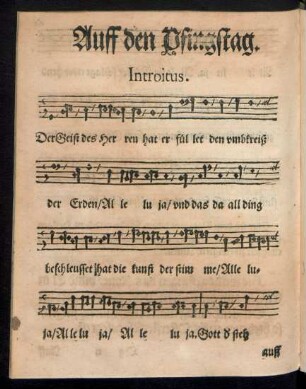 Auff den Pfingstag.
Introitus.
Der Geist des Her ren hat er fül let den vmbkreiß
der Erden/ Al le lu ja/ vnd das da all ding
beschleusset/ hat die kunst der stim me/ Alle lu-
ja/ Al le lu ja/ Al le lu ja. Gott d steh
auff